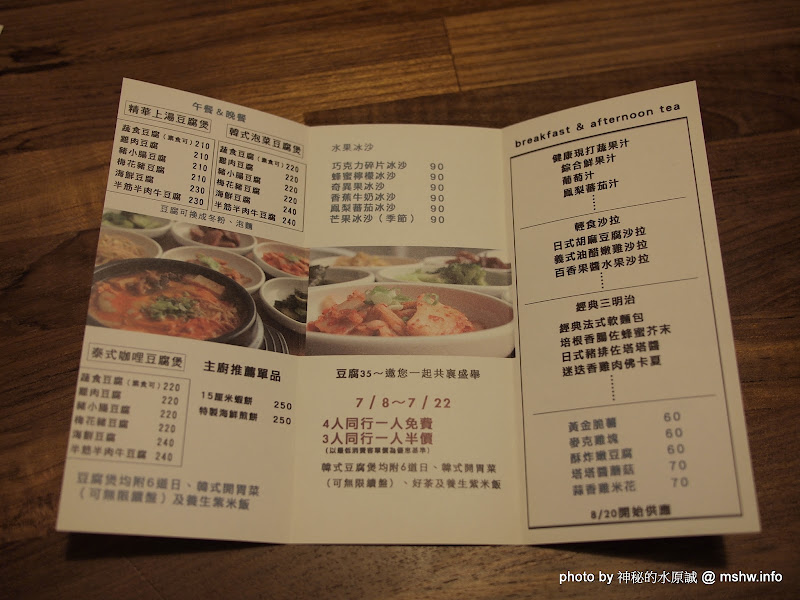 午餐 & 晚餐
精華上湯豆腐煲
蔬食豆腐(素食可) 210
雞肉豆腐 210
豬小腸豆腐 210
梅花豬豆腐 210
海鮮豆腐 230
半筋半肉牛豆腐 230
韓式泡菜豆腐煲
蔬食豆腐(素食可) 220
雞肉豆腐 220
豬小腸豆腐 220
梅花豬豆腐 220
海鮮豆腐 240
半筋半肉牛豆腐 240
豆腐可換成冬粉、泡麵
泰式咖哩豆腐煲
蔬食豆腐(素食可) 220
雞肉豆腐 220
豬小腸豆腐 220
梅花豬豆腐 220
海鮮豆腐 240
半筋半肉牛豆腐 240
主廚推薦單品
15厘米蝦餅 250
特製海鮮煎餅 250
豆腐煲均附6道日、韓式開胃菜
(可無限續盤)及養生紫米飯
水果冰沙
巧克力碎片冰沙 90
蜂蜜檸檬冰沙 90
奇異果冰沙 90
香蕉牛奶冰沙 90
鳳梨蕃茄冰沙 90
芒果冰沙(季節) 90
豆腐35～邀您一起共襄盛舉
7/8～7/22
4人同行一人免費
3人同行一人半價
(以最低消費套單價為優惠基準)
韓式豆腐煲均附6道日、韓式開胃菜
(可無限續盤)、好茶及養生紫米飯
breakfast & afternoon tea
健康現打蔬果汁
綜合鮮果汁
葡萄汁
鳳梨蕃茄汁
輕食沙拉
日式胡麻豆腐沙拉
義式油醋嫩雞沙拉
百香果醬水果沙拉
經典三明治
經典法式軟麵包
培根香腸佐蜂蜜芥末
日式豬排佐塔塔醬
迷迭香雞肉佛卡夏
黃金脆薯 60
麥克雞塊 60
酥炸嫩豆腐 60
塔塔醬蘑菇 70
蒜香雞米花 70
8/20開始供應
photo by 神秘的水原誠 @ mshw.info